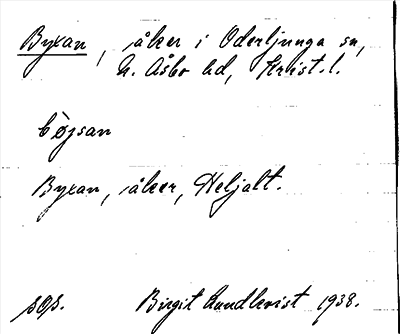 Byxan, åker i Oderljunga sn,
N. Åsbo hd, Krist. l.
bøjsan
Byxan, åker, Heljalt.
sops. Birgit Lundkvist 1938.